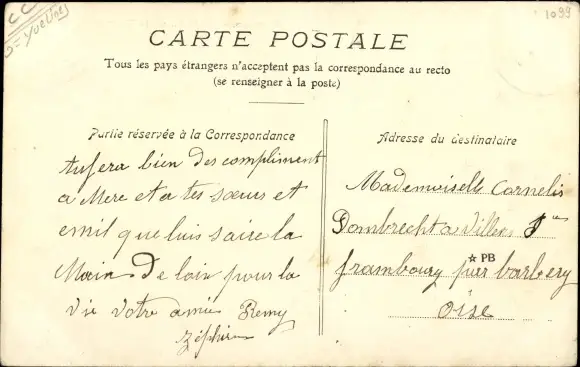 1099
CC
Yvelines
CARTE POSTALE
Tous les pays étrangers n'acceptent pas la correspondance au recto
(se renseigner à la poste)
Partie réservée à la Correspondance
Adresse du destinataire
tu fera bien des compliment
a Mere et a tes sœurs et
emil que luis saire la
Main De loin pour la
vie votre amie Remy
Zéphir
Mademoiselle Cornelis
Dombrecht a Villers St
frambourg par barbery
☆ PB
oise